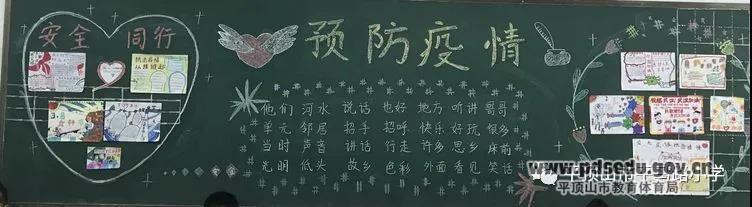 安全 同行
预防疫情
他们 河水 说话 也好 地方 听讲 哥哥
单元 邻居 招手 招呼 快乐 好玩 很多
当时 声音 讲话 行走 许多 思乡 床前
光明 低头 故乡 色彩 外面 看见 笑话
www.pdsedu.gov.cn
平顶山市教育体育局